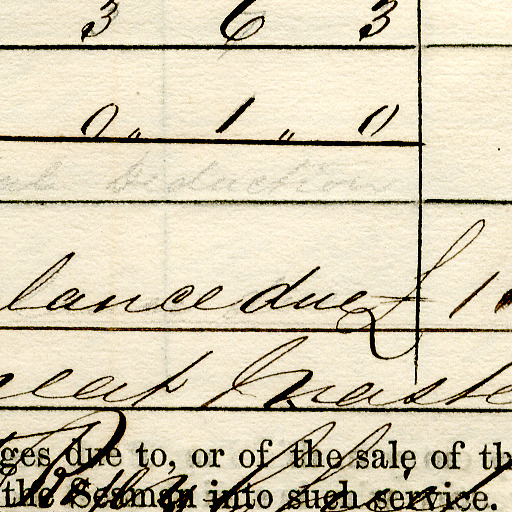 3 6 3
0 „ 1 „ 0
deduction
lance due £ 1
ges due to, or of the sale of th
the Seaman into such service.